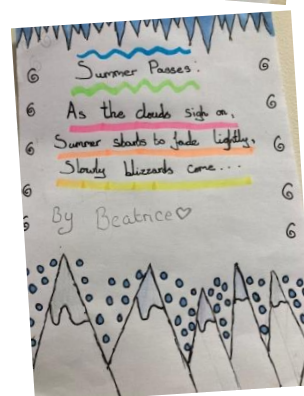 Summer Passes:
As the clouds sigh on,
Summer starts to fade lightly,
Slowly blizzards come...
By Beatrice♡